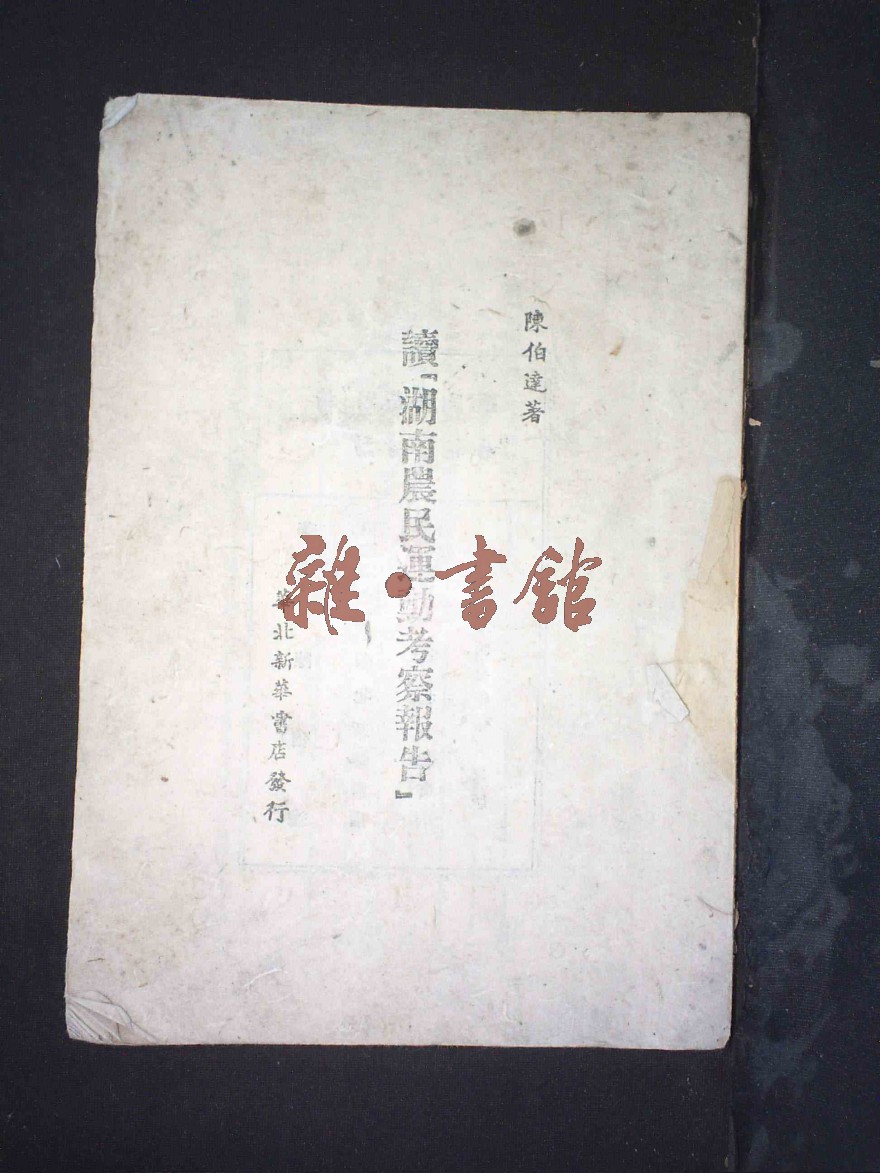 陳伯達著
讀「湖南農民運動考察報告」
華北新華書店發行
雜·書館